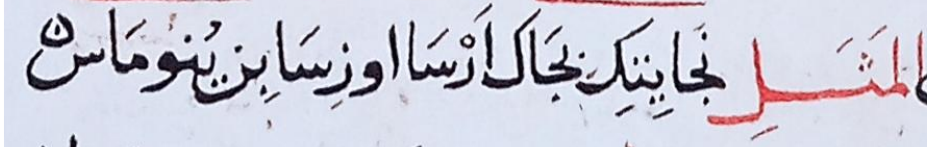 المَثَلِ نَجَا يِتِكِ بِجَاكَ اَرْسَا اوزِ سَابِنِ يُنومَاس ٥